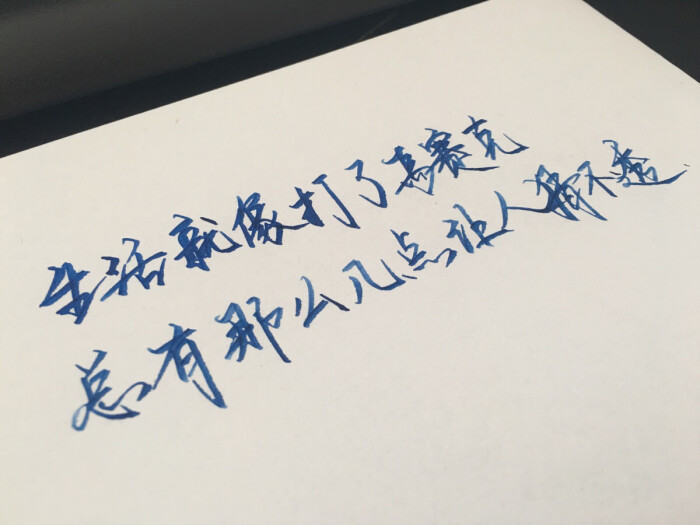 生活就像打了马赛克
总有那么几点让人猜不透